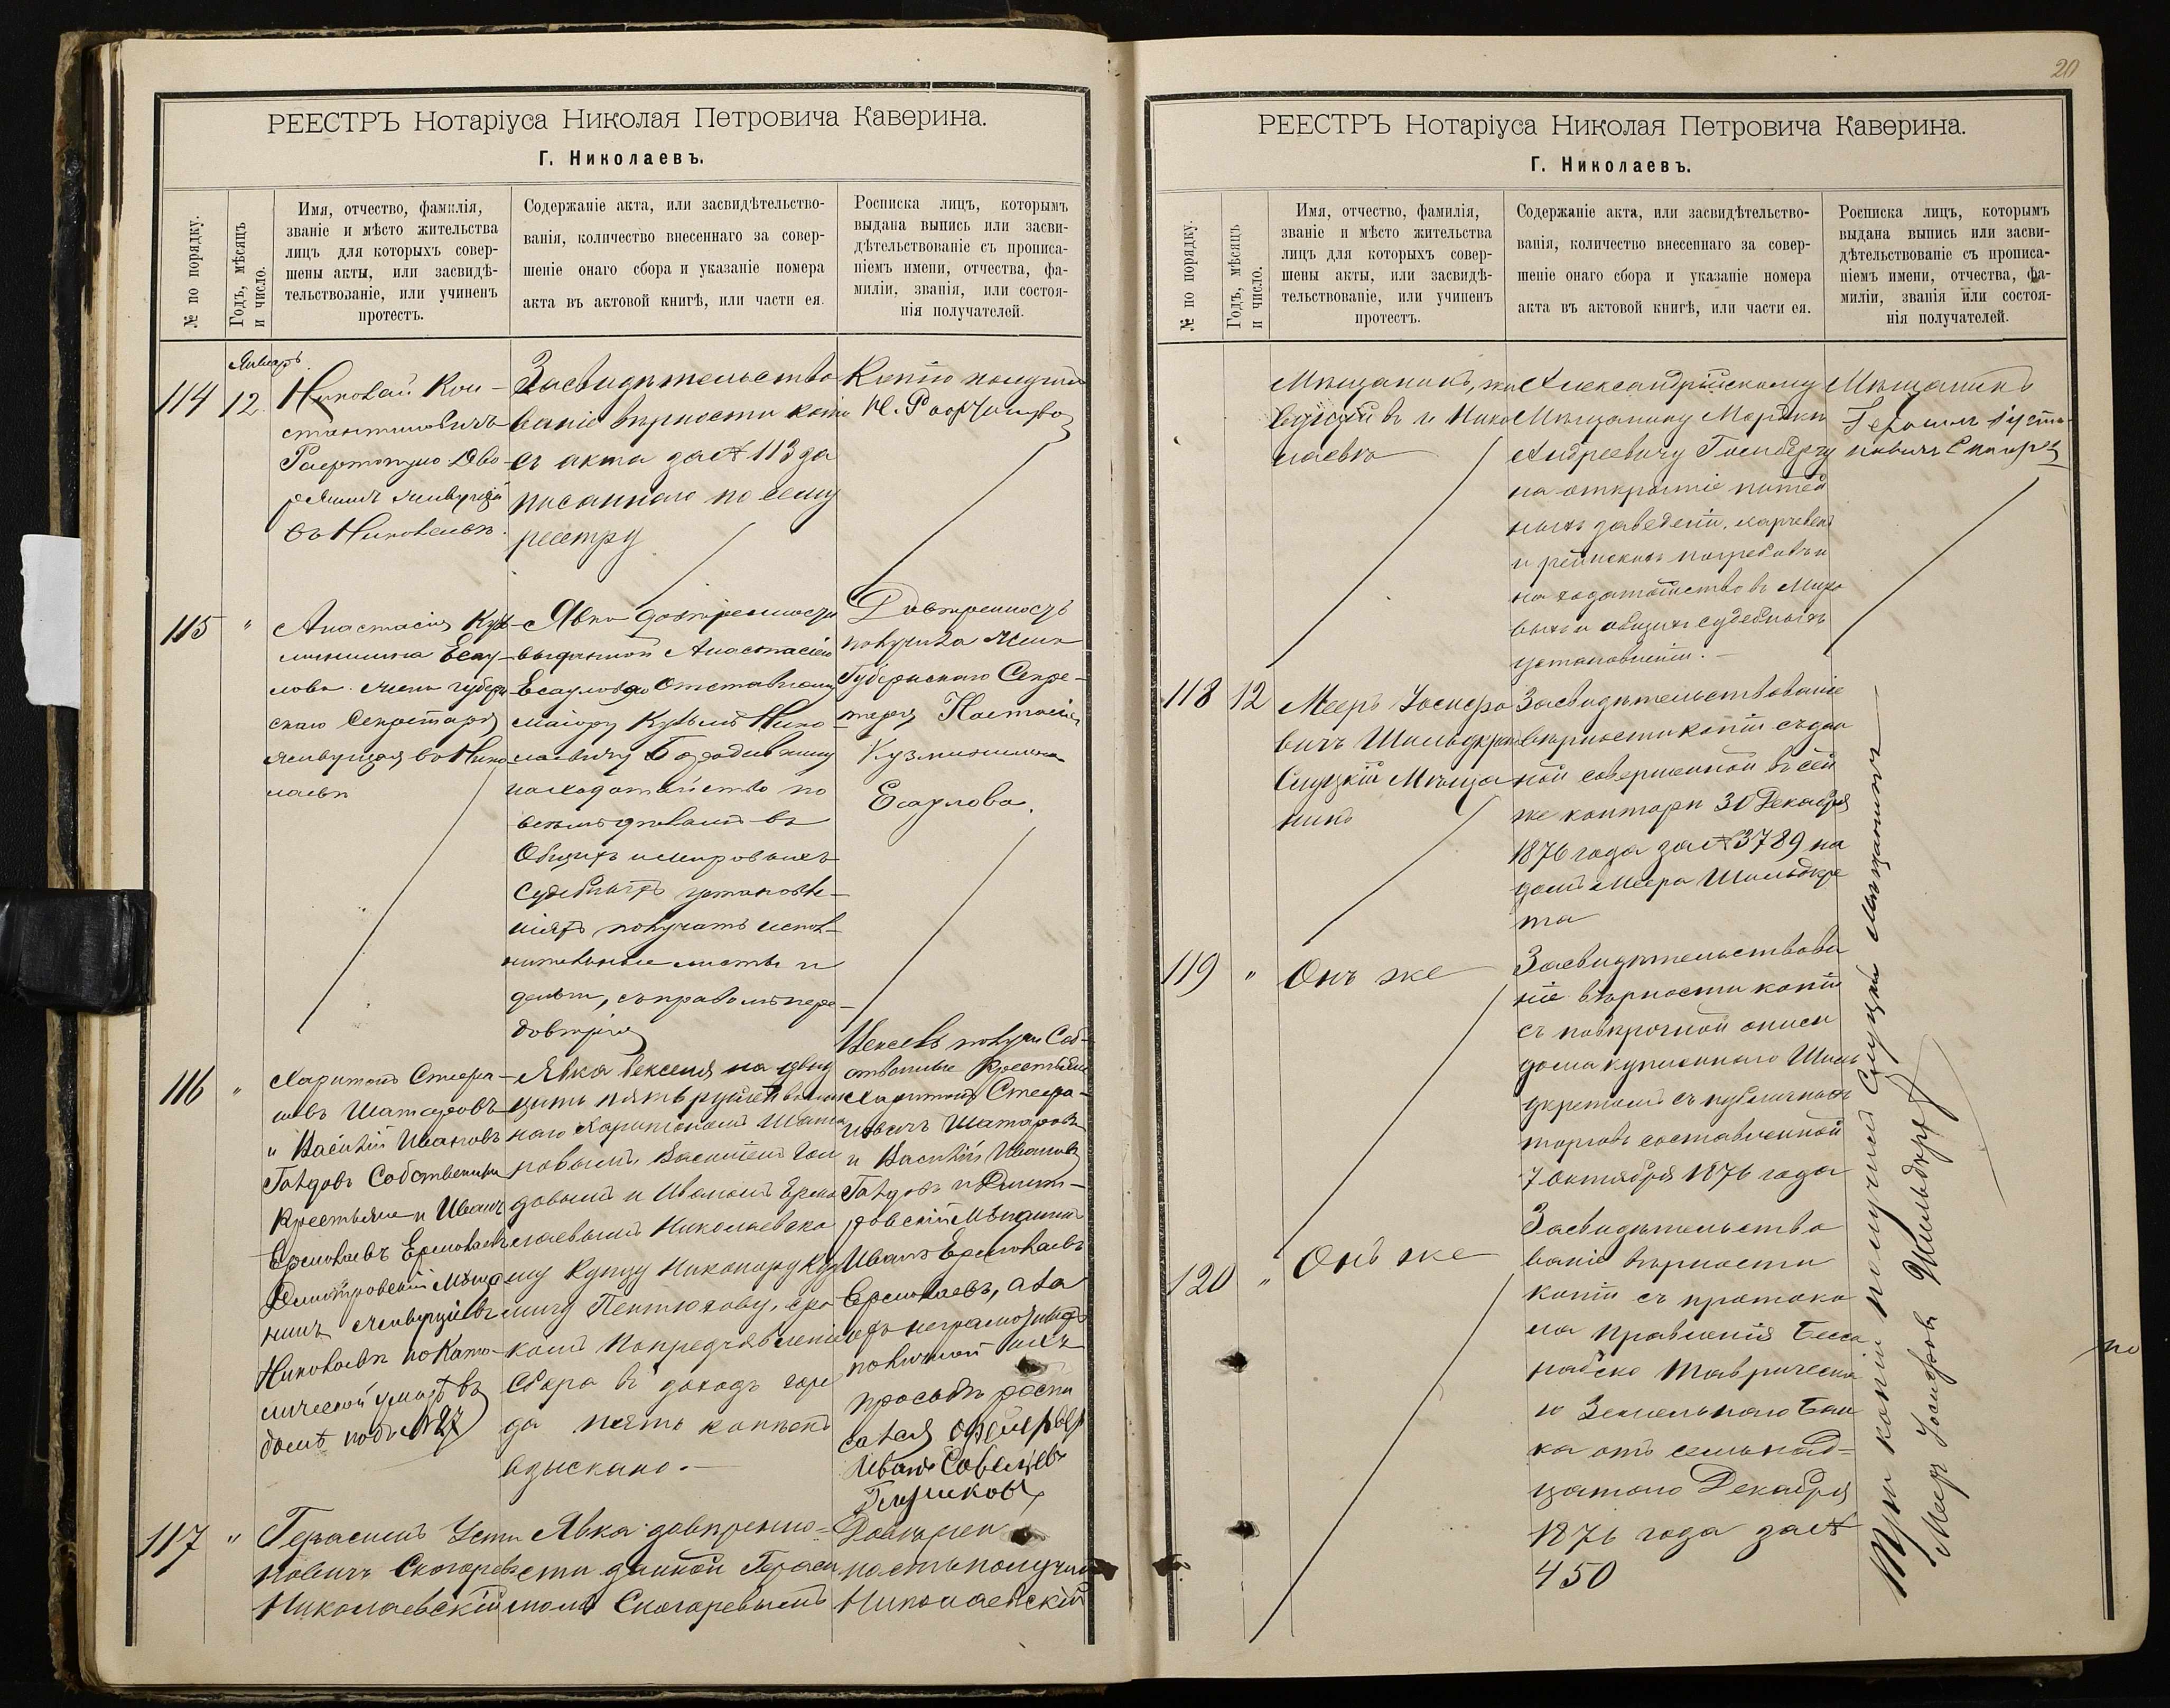 РЕЕСТРЪ Нотаріуса Николая Петровича Каверина.
Г. Николаевъ.
№ по порядку.
Годъ, мѣсяцъ
и число.
Имя, отчество, фамилія,
званіе и мѣсто жительства
лицъ для которыхъ совер-
шены акты, или засвидѣ-
тельствозаніе, или учиненъ
протестъ.
Содержаніе акта, или засвидѣтельство-
ванія, количество внесеннаго за совер-
шеніе онаго сбора и указаніе номера
акта въ актовой книгѣ, или части ея.
Росписка лицъ, которымъ
выдана выпись или засви-
дѣтельствованіе съ прописа-
ніемъ имени, отчества, фа-
миліи, званія, или состоя-
нія получателей.
Январь
114
12
Николай Кон-
стантиновичъ
Дво-
рянинъ живущій
въ Николаевѣ.
Засвидѣтельство
ваніе вѣрности копіи
съ акта за № 113 за
писаннаго по сему
реестру
Копію получилъ
Н.
115
"
Анастасія Кузь
минишна Есау-
лова жена губерн
скаго Секретаря
живущая въ Нико
лаевѣ
Явка довѣренности
выданной Анастасіею
Есауловою Отставному
маіору Кузьмѣ Нико
лаевичу
на ходатайство по
всѣмъ дѣламъ въ
Общихъ и мировыхъ
Судебныхъ установле-
ніяхъ, получать испол-
нительные листы и
деньги, съ правомъ пере-
довѣрія
Довѣренность
получила жена
Губернскаго Секре-
таря Настасія
Кузминишна
Есаулова.
116
"
Харитонъ Степа-
новъ Шатаровъ
и Василій Ивановъ
Голдовъ Собственники
Крестьяне и Иванъ
Ермолаевъ Ермолаевъ
Дмитровскій Мѣща
нинъ живущіе въ
Николаевѣ по Като-
лической улицѣ въ
домѣ подъ № 27
Явка векселя на двад
цать пять рублей выдан
наго Харитономъ Шата
ровымъ, Василіемъ Гол
довымъ и Иваномъ Ермо
лаевымъ Николаевско
му Купцу Никонору Кузь
мичу Пентюхову, сро
комъ по предъявленіи
Сбора въ доходъ горо
да пять копѣекъ
взыскано.
Вексель получили Соб-
ственные Крестьяне
Харитонъ Степа-
новичъ Шатаровъ
и Василій Ивановъ
Голдовъ и Дмит-
ровскій Мѣщанинъ
Иванъ Ермолаевъ
Ермолаевъ, а за
ихъ неграмотныхъ
по личной ихъ
просьбѣ роспи
сался
Иванъ Савельевъ
117
"
Герасимъ Усти
новичъ Скогаревъ
Николаевскій
Явка довѣренно-
сти данной Гераси
момъ Скогаревымъ
Довѣрен
ность получилъ
Николаевскій
20
РЕЕСТРЪ Нотаріуса Николая Петровича Каверина.
Г. Николаевъ.
№ по порядку.
Годъ, мѣсяцъ
и число.
Имя, отчество, фамилія,
званіе и мѣсто жительства
лицъ для которыхъ совер-
шены акты, или засвидѣ-
тельствованіе, или учиненъ
протестъ.
Содержаніе акта, или засвидѣтельство-
ванія, количество внесеннаго за совер-
шеніе онаго сбора и указаніе номера
акта въ актовой книгѣ, или части ея.
Росписка лицъ, которымъ
выдана выпись или засви-
дѣтельствованіе съ прописа-
ніемъ имени, отчества, фа-
миліи, званія или состоя-
нія получателей.
Мѣщанинъ, жи
вущій въ г. Нико
лаевѣ
Александрійскому
Мѣщанину
Андреевичу
на открытіе питей
ныхъ заведеній, харчевенъ
и ренсковъ погребовъ и
на ходатайство въ Миро
выхъ и общихъ судебныхъ
установленіи.
Мѣщанинъ
Герасимъ Усти-
новичъ
118
12
Мееръ Іосифо
вичъ Шильдкретъ
Слуцкій Мѣща
нинъ
Засвидѣтельствованіе
вѣрности копіи съ дан
ной совершенной въ сей
же конторѣ 30 Декабря
1876 года за № 3789 на
домъ Меера Шильдкре
та
119
"
Онъ же
Засвидѣтельствова
ніе вѣрности копіи
съ повѣрочной описи
дома купленнаго Шиль
дкретомъ съ публичныхъ
торговъ составленной
7 октября 1876 года
120
"
Онъ же
Засвидѣтельство
ваніе вѣрности
копіи съ протоко
ла правленія Бесса
рабско Таврическа
го Земельнаго Бан
ка отъ семьнад-
цатаго Декабря
1876 года за №
450
Три копіи получилъ Слуцкій Мѣщанинъ
Меер Іосифов Шильдкрет
по